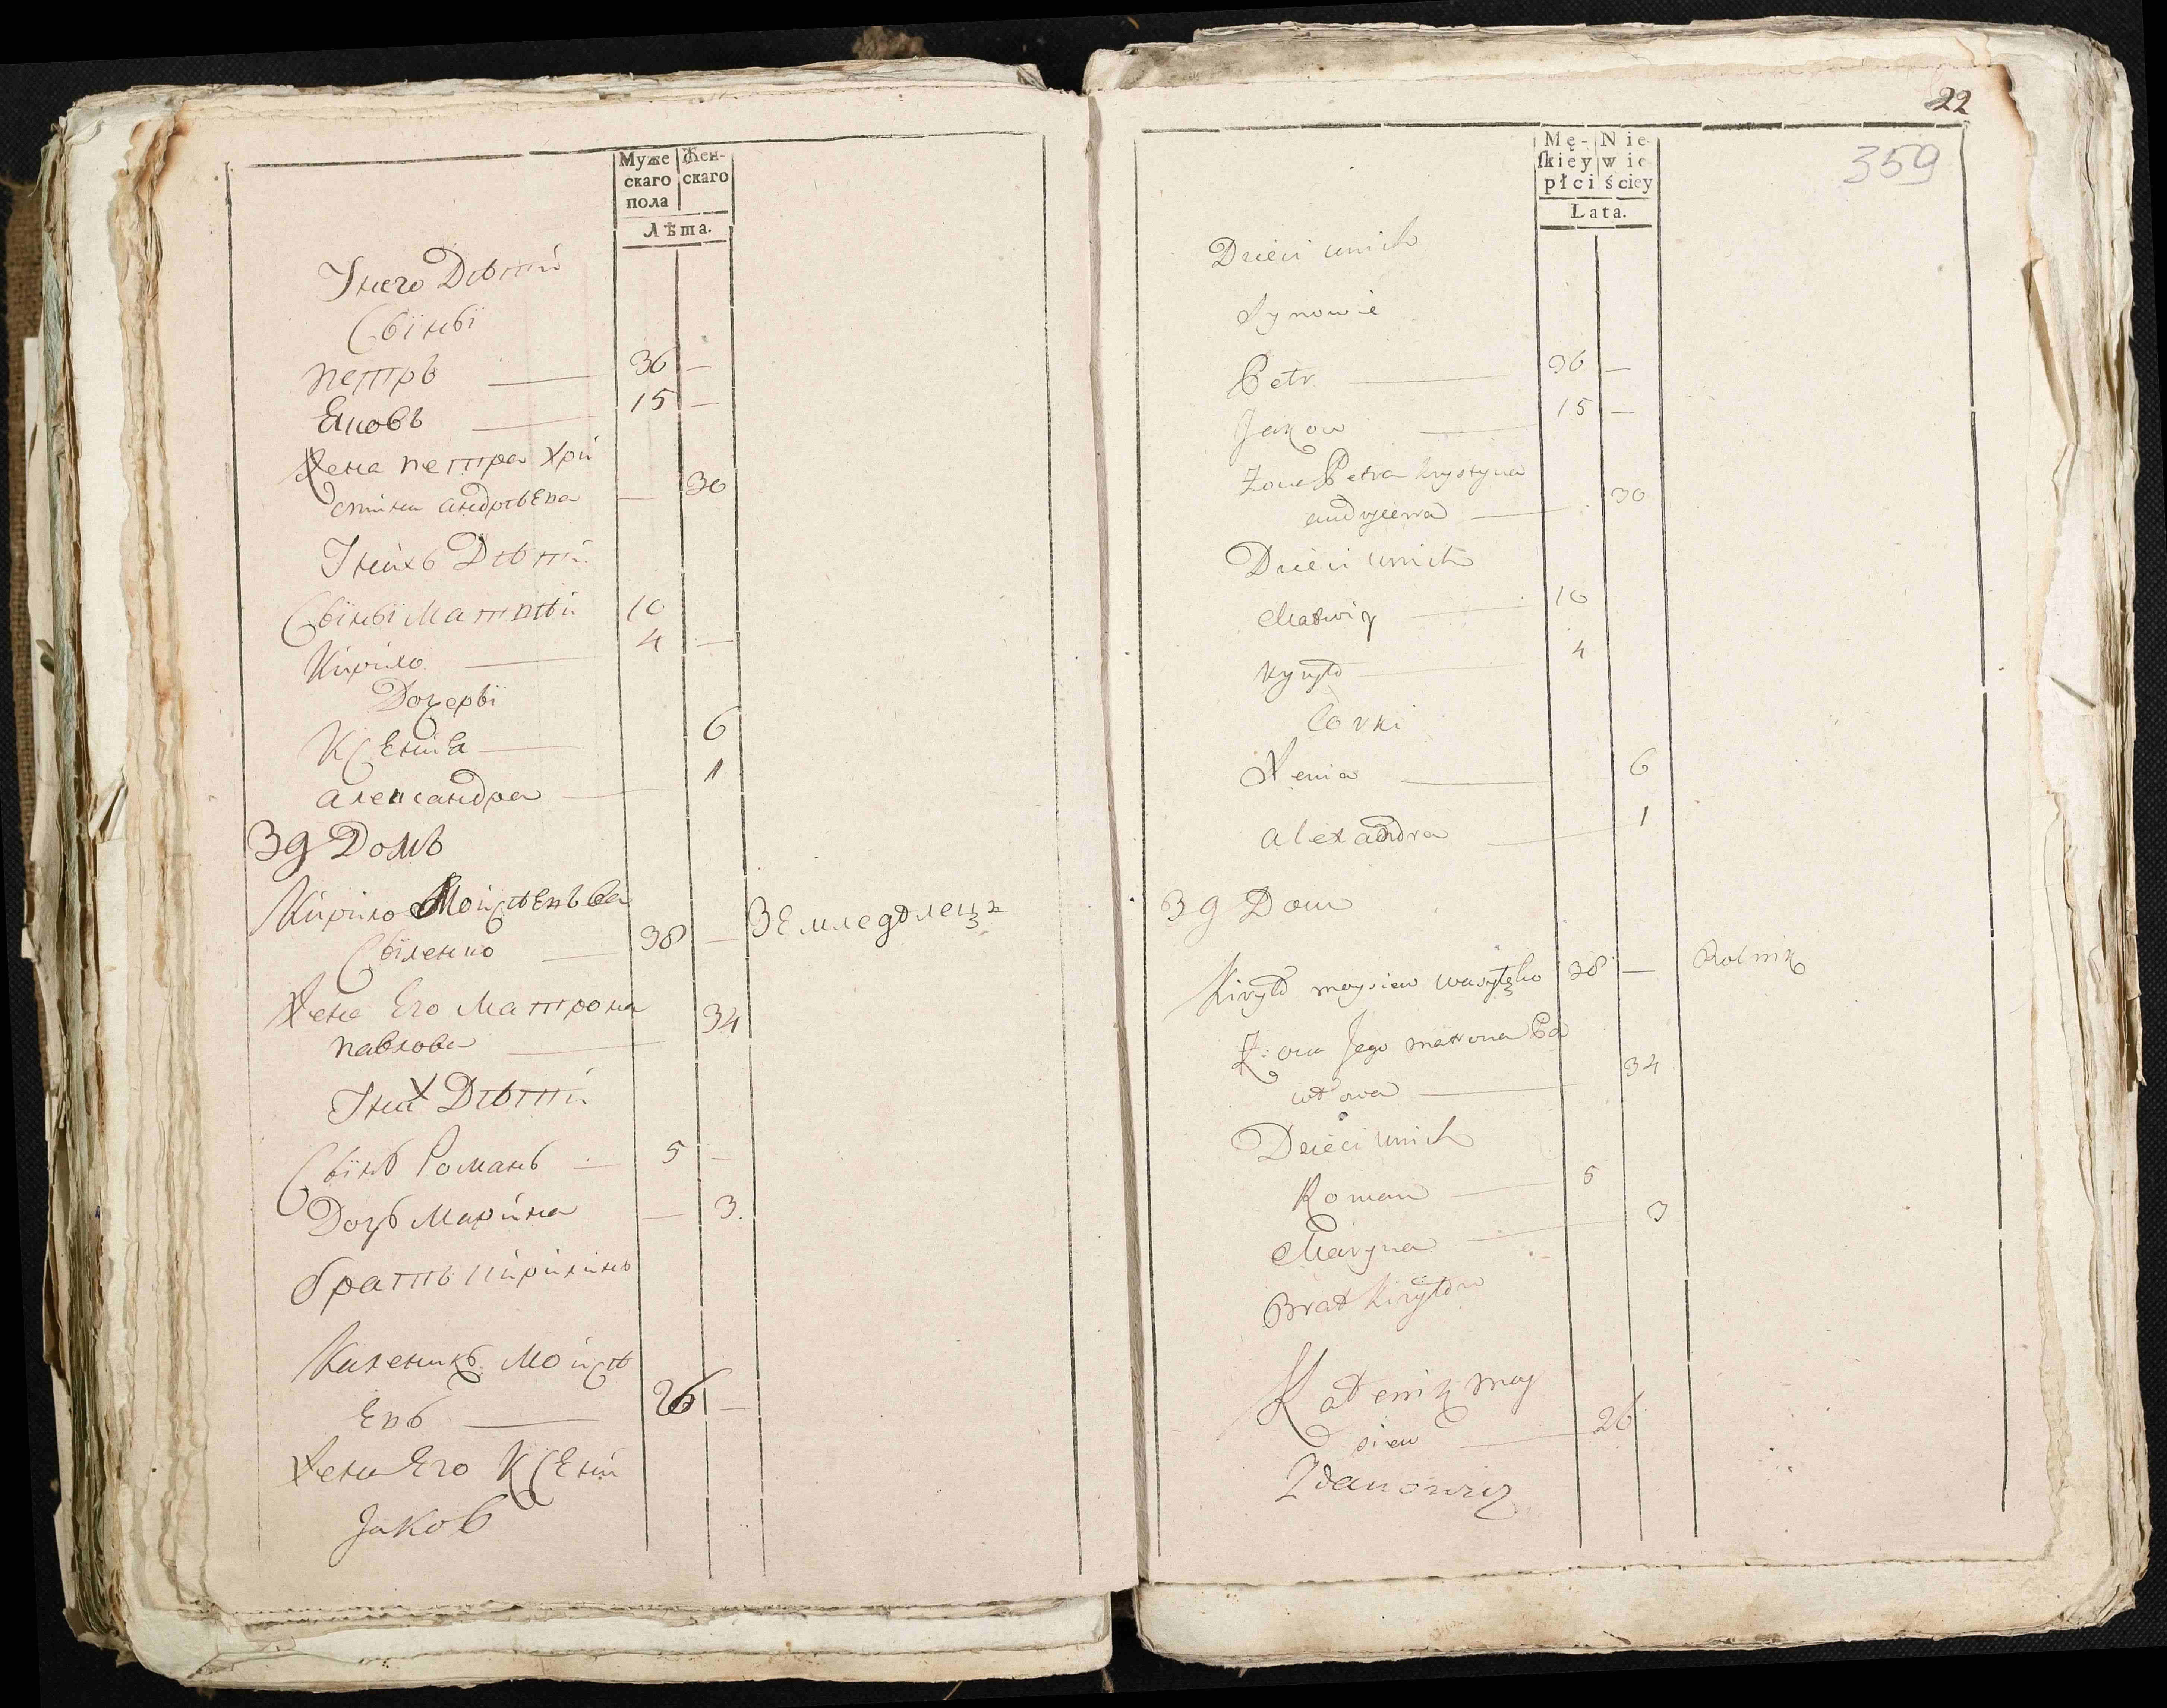 Муже Жен-
скаго скаго
пола
Лѣта.
Унего Дѣтіи
Сыіны
Петръ — 36 —
Яковъ — 15 —
Жена петра Хри
стина андрѣева — 30
Унихъ Дѣти
Сыіны Матвѣй 10
Кирило — 4 —
Дочеры
Ксения — 6
александра — 1
39 Домъ
Кирило Мойсѣевъ ва
силенко — 38 — Земледѣлецъ
Жена Его Матрона
павлова — 34
Уних Дѣтіи
Сыінъ Романъ — 5 —
Дочъ Марина — 3.
братъ кирилинъ
Каленикъ Мойсѣ
евъ — 26 —
Жена Его Ксени
Jakob
22
359
Mę- Nie-
skiéy wie-
płci ściey
Lata.
Dzieci unich
Synowie
Petr — 36 —
Jakow — 15 —
Zona Petra Krystyna
andryiewa — 30
Dzieci unich
Matwiy — 10
Kyryło — 4
Corki
Xenia — 6
alexandra — 1
39 Dom
Kiryło moysiew wasyłęko 38 — Rolnik
Zona Jego matrona Pa
włowa — 34
Dzieci unich
Roman — 5
Maryna — 3
Brat Kiryłow
Kałenik moy
siew — 26
Zdanowicz